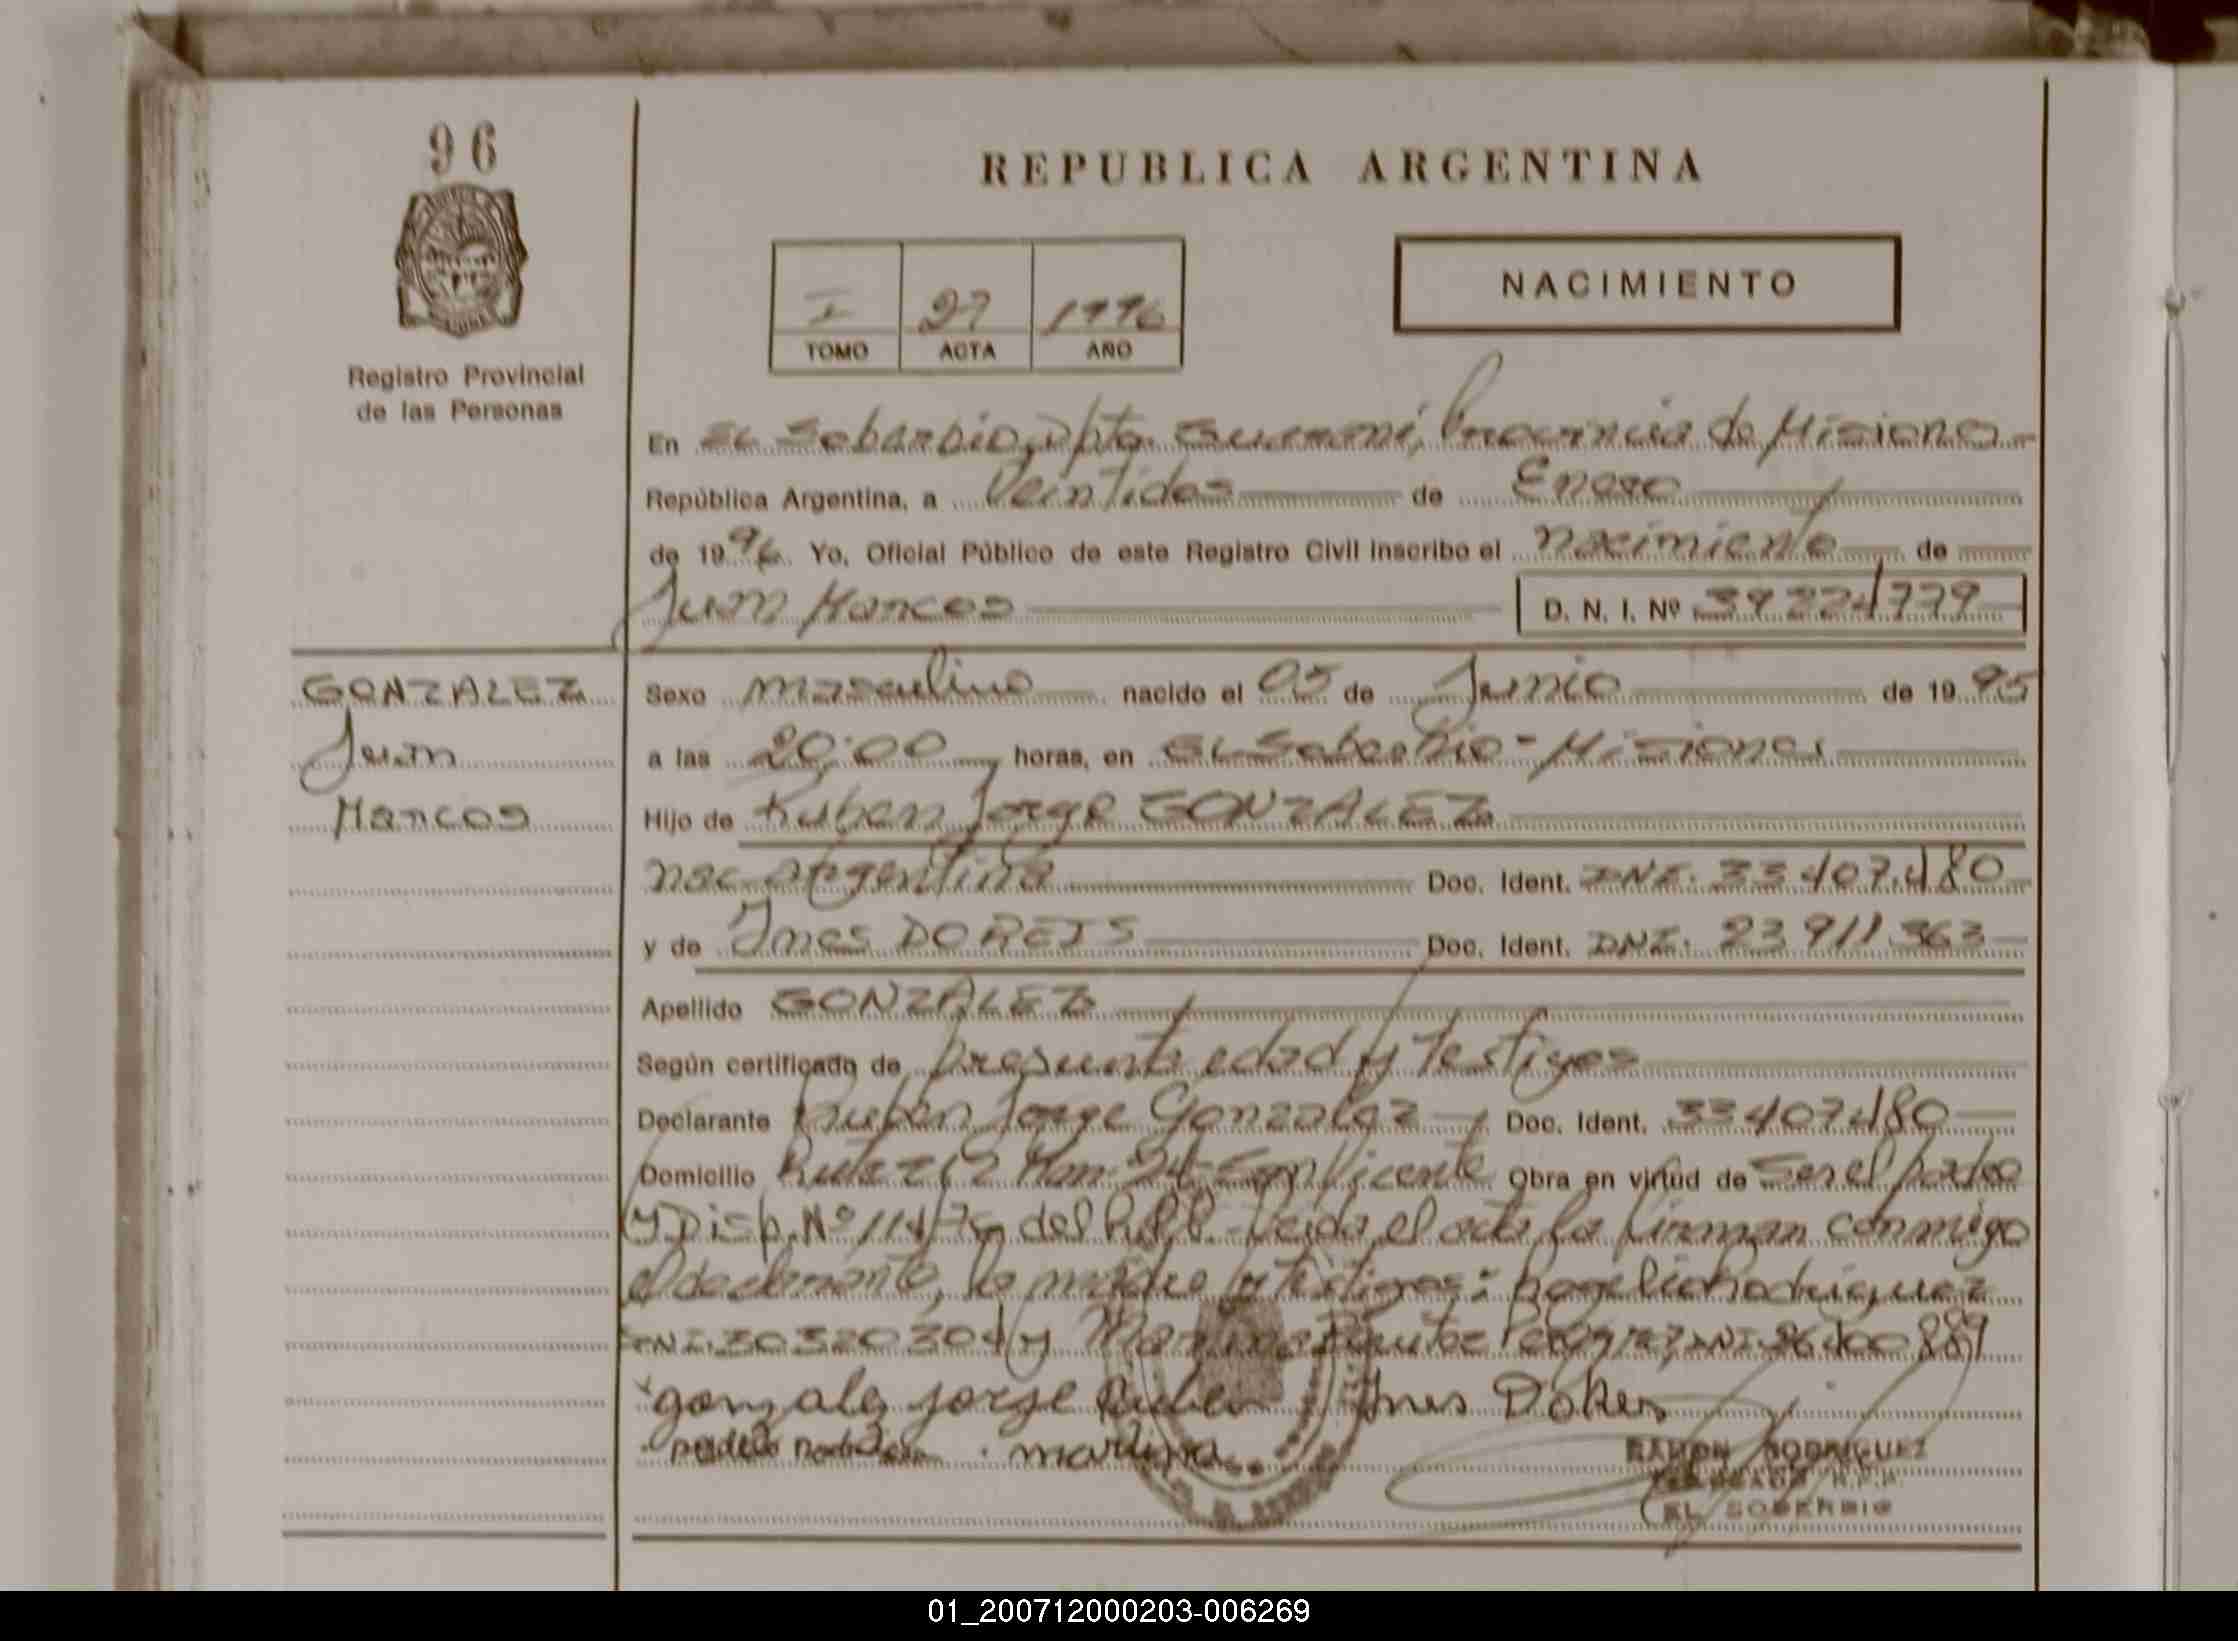 96
REPUBLICA ARGENTINA
NACIMIENTO
I 27 1996
TOMO ACTA AÑO
Registro Provincial
de las Personas
En El Soberbio, Dpto. Guaraní, Provincia de Misiones
República Argentina, a Veintidos de Enero
de 1996 Yo, Oficial Público de este Registro Civil inscribo el nacimiento de
Juan Marcos D. N. I. Nº 39224779
GONZALEZ
Juan
Marcos
Sexo masculino nacido el 05 de Junio de 1995
a las 20:00 horas, en El Soberbio - Misiones
Hijo de Ruben Jorge GONZALEZ
nac. argentina Doc. Ident. DNI. 33407.480
y de Ines DOREIS Doc. Ident. DNI. 23911363
Apellido GONZALEZ
Según certificado de presunta edad y testigos
Declarante Ruben Jorge Gonzalez Doc. Ident. 33407480
Domicilio Ruta 212 Km 24 San Vicente Obra en virtud de Ser el padre
y Disp. Nº 114/ del R.P.P. Leida el acta la firman conmigo
el declarante, la madre y testigos: Rogelio Rodriguez
DNI. 30320304 y Marina DNI. 26400889
gonzalez jorge Ruben Ines Dores
marina
RAMON RODRIGUEZ
R.P.P.
EL SOBERBIO
01_200712000203-006269